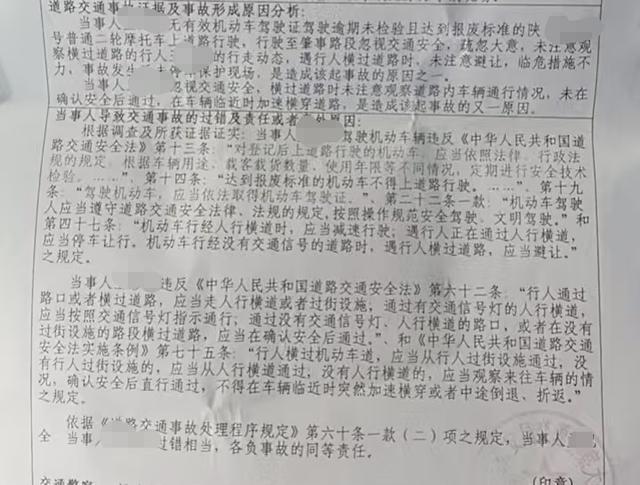 道路交通事故证据及事故形成原因分析:
当事人 无有效机动车驾驶证驾驶逾期未检验且达到报废标准的陕
号普通二轮摩托车上道路行驶,行驶至肇事路段忽视交通安全,疏忽大意,未注意观
察横过道路的行人 的行走动态,遇行人横过道路时、未注意避让,临危措施不
力,事故发生 停 保护现场,是造成该起事故的原因之一。
当事人 忽视交通安全,横过道路时未注意观察道路内车辆通行情况,未在
确认安全后通过,在车辆临近时加速横穿道路,是造成该起事故的又一原因。
当事人导致交通事故的过错及责任或者 原因:
根据调查及所获证据证实:当事人 驾驶机动车辆违反《中华人民共和国道
路交通安全法》第十三条:“对登记后上道路行驶的机动车,应当依照法律、行政法
规的规定,根据车辆用途、载客载货数量、使用年限等不同情况,定期进行安全技术
检验。……”、第十四条:“达到报废标准的机动车不得上道路行驶。……”、第十九
条:“驾驶机动车,应当依法取得机动车驾驶证。”、第二十二条一款:“机动车驾驶
人应当遵守道路交通安全法律、法规的规定,按照操作规范安全驾驶、文明驾驶。”和
第四十七条:“机动车行经人行横道时,应当减速行驶;遇行人正在通过人行横道,
应当停车让行。机动车行经没有交通信号的道路时,遇行人横过道路,应当避让。”
之规定。
当事人 违反《中华人民共和国道路交通安全法》第六十二条:“行人通过
路口或者横过道路,应当走人行横道或者过街设施;通过有交通信号灯的人行横道,
应当按照交通信号灯指示通行;通过没有交通信号灯、人行横道的路口,或者在没有
过街设施的路段横过道路,应当在确认安全后通过。”、和《中华人民共和国道路交通
安全法实施条例》第七十五条:“行人横过机动车道,应当从行人过街设施通过;没
有行人过街设施的,应当从人行横道通过;没有人行横道的,应当观察来往车辆的情
况,确认安全后直行通过,不得在车辆临近时突然加速横穿或者中途倒退、折返。”
之规定。
依据《道路交通事故处理程序规定》第六十条一款(二)项之规定,当事人
全 当事人 过错相当,各负事故的同等责任。
交通警察 (印章)